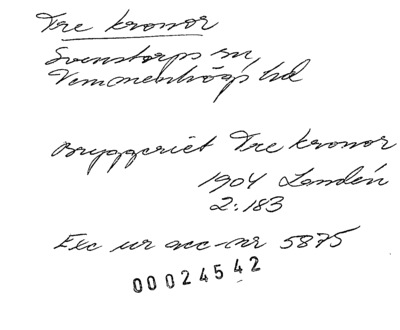 Tre kronor
Svenstorps sn,
Vemmenhögs hd
Bryggeriet Tre kronor
1904 Landén
2:183
Exc ur acc-nr 5875
00024542